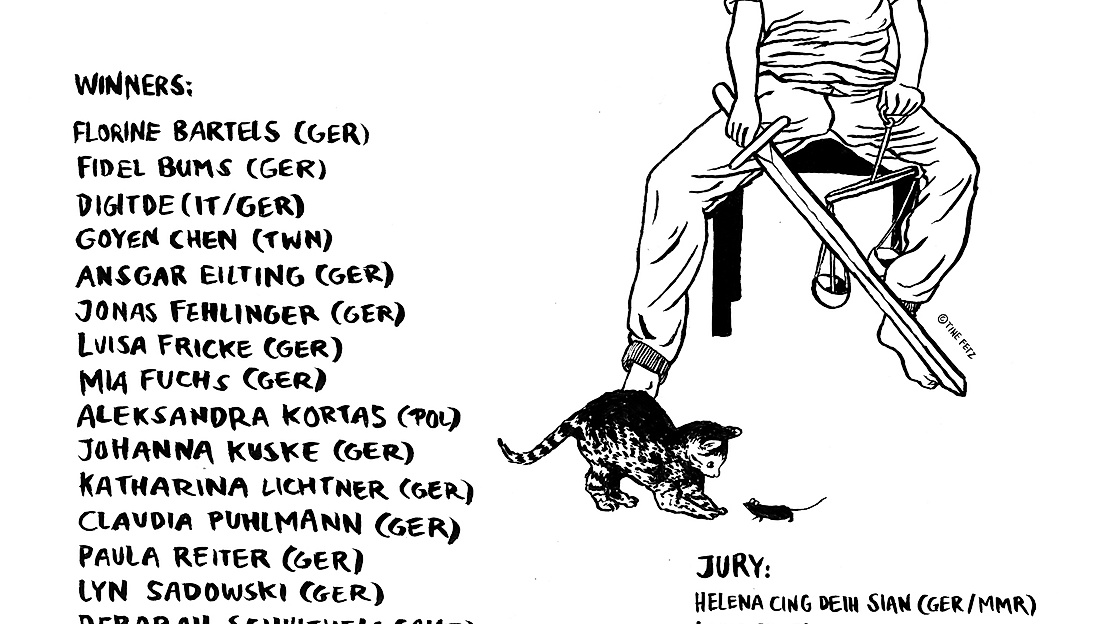 WINNERS:
FLORINE BARTELS (GER)
FIDEL BUMS (GER)
DIGITDE (IT/GER)
GOYEN CHEN (TWN)
ANSGAR EILTING (GER)
JONAS FEHLINGER (GER)
LUISA FRICKE (GER)
MIA FUCHS (GER)
ALEKSANDRA KORTAS (POL)
JOHANNA KUSKE (GER)
KATHARINA LICHTNER (GER)
CLAUDIA PUHLMANN (GER)
PAULA REITER (GER)
LYN SADOWSKI (GER)
DEBORAH
©TINE FETZ
JURY:
HELENA CING DEIH SIAN (GER/MMR)